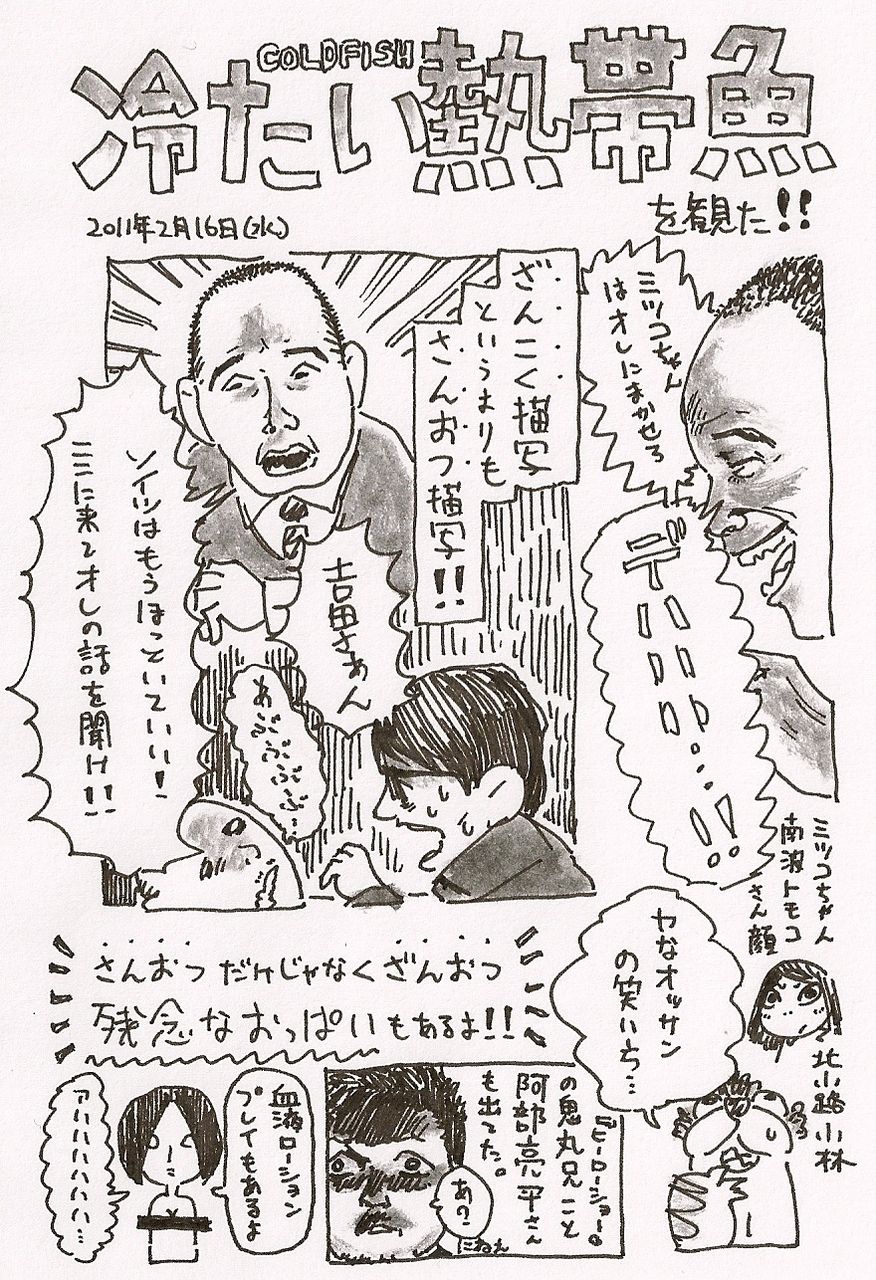 COLDFISH
冷たい熱帯魚
を観た!!
2011年2月16日(水)
ミツコちゃん
はオレにまかせろ
デハハハ...!!
ざんこく描写
というよりも
さんおつ描写!!
吉田さぁん
ソイツはもうほっといていい!
ここに来てオレの話を聞け!!
あぶぶぶぶ…
ミツコちゃん
南波トモコ
さん顔
さんおつだけじゃなくざんおつ
残念なおっぱいもあるよ!!
ヤなオッサン
の笑いち…
北小路小林
『ヒーローショー』
の鬼丸兄こと
阿部亮平さん
も出てた。
あ?
にねえ
血液ローション
プレイもあるよ
アハハハハハハ…